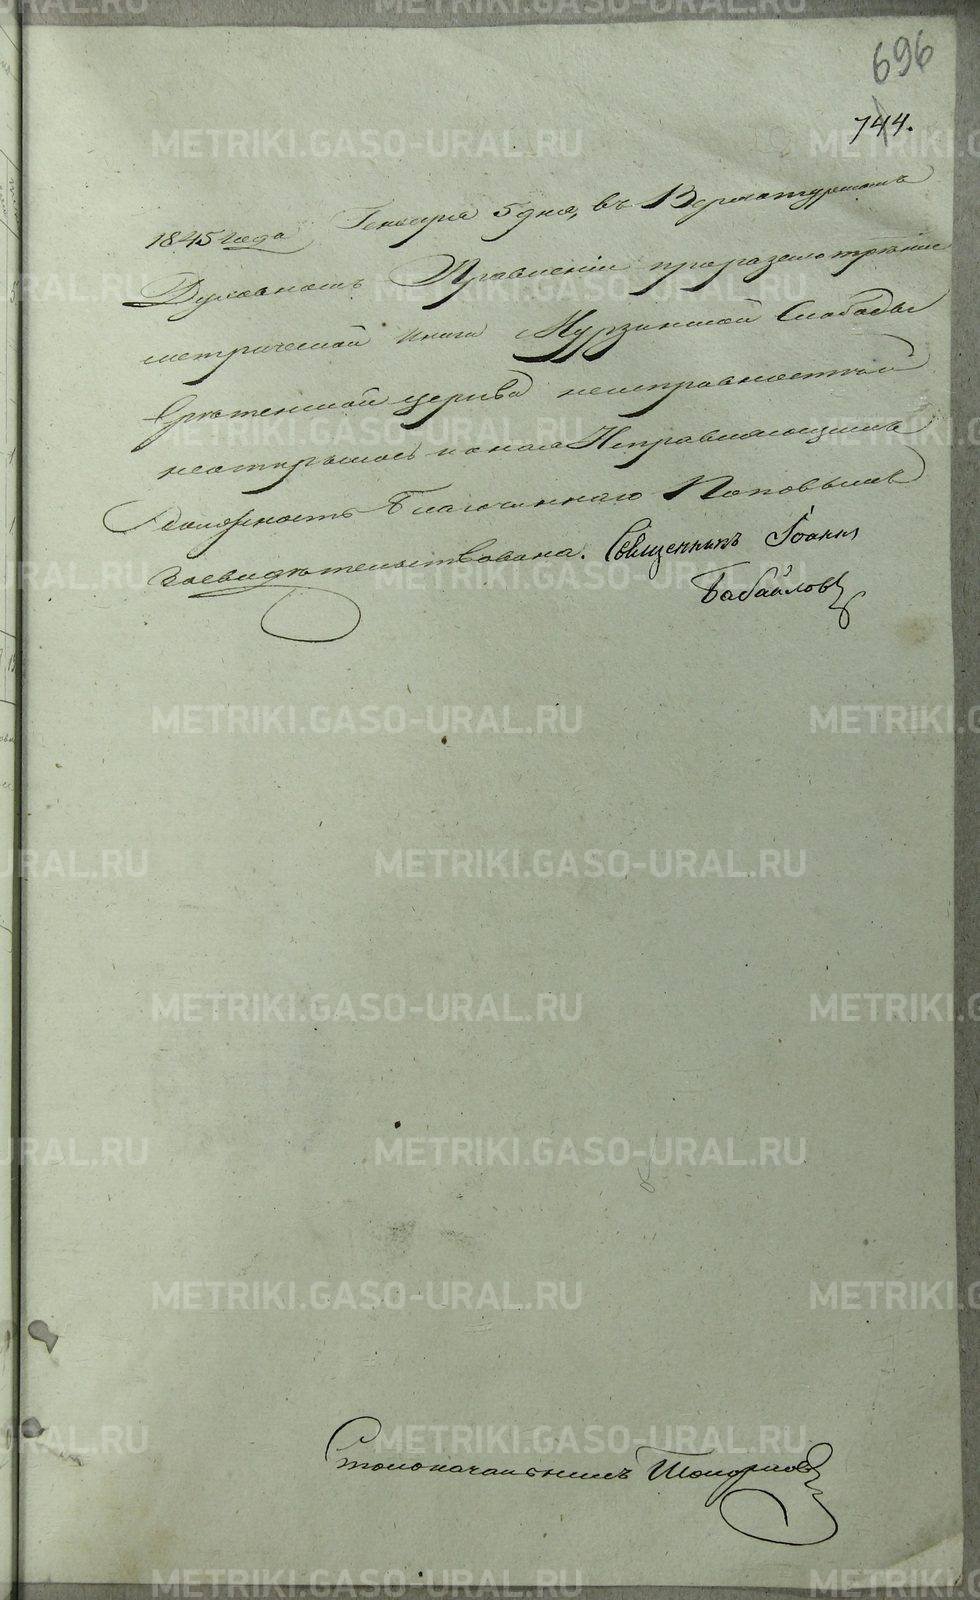 696
744.
1845 года Генваря 5 дня, въ Верхотурскомъ
Духовномъ Правленіи приразсмотрѣніи
метрической книги Мурзинской Слободы
Срѣтенской церкви неисправностей
неоткрылось и оная Исправляющимъ
должность Благочиннаго Поповымъ
засвидѣтельствована. Священникъ Іоаннъ
Бабайловъ
Столоначальникъ
METRIKI.GASO-URAL.RU